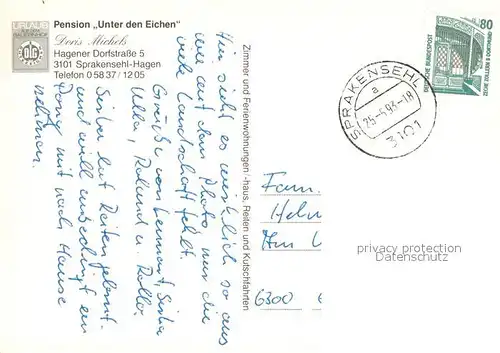 URLAUB
AUF DEM BAUERNHOF
DLG
Pension „Unter den Eichen"
Doris Michels
Hagener Dorfstraße 5
3101 Sprakensehl-Hagen
Telefon 0 58 37 / 12 05
Hier sieht es wirklich so aus
wie auf dem Photo, nur die
viele Landschaft fehlt.
Grüße von Lennart, Sirka
Ulla, Roland u. Rollo.
Sirka hat Reiten gelernt
und will unbedingt ein
Pony mit nach Hause
nehmen.
Zimmer und Ferienwohnungen, -haus, Reiten und Kutschfahrten
SPRAKENSEHL
a
3101
80
DEUTSCHE BUNDESPOST
ZECHE ZOLLERN II DORTMUND
Fam.
Helm
Am
6300
privacy protection
Datenschutz